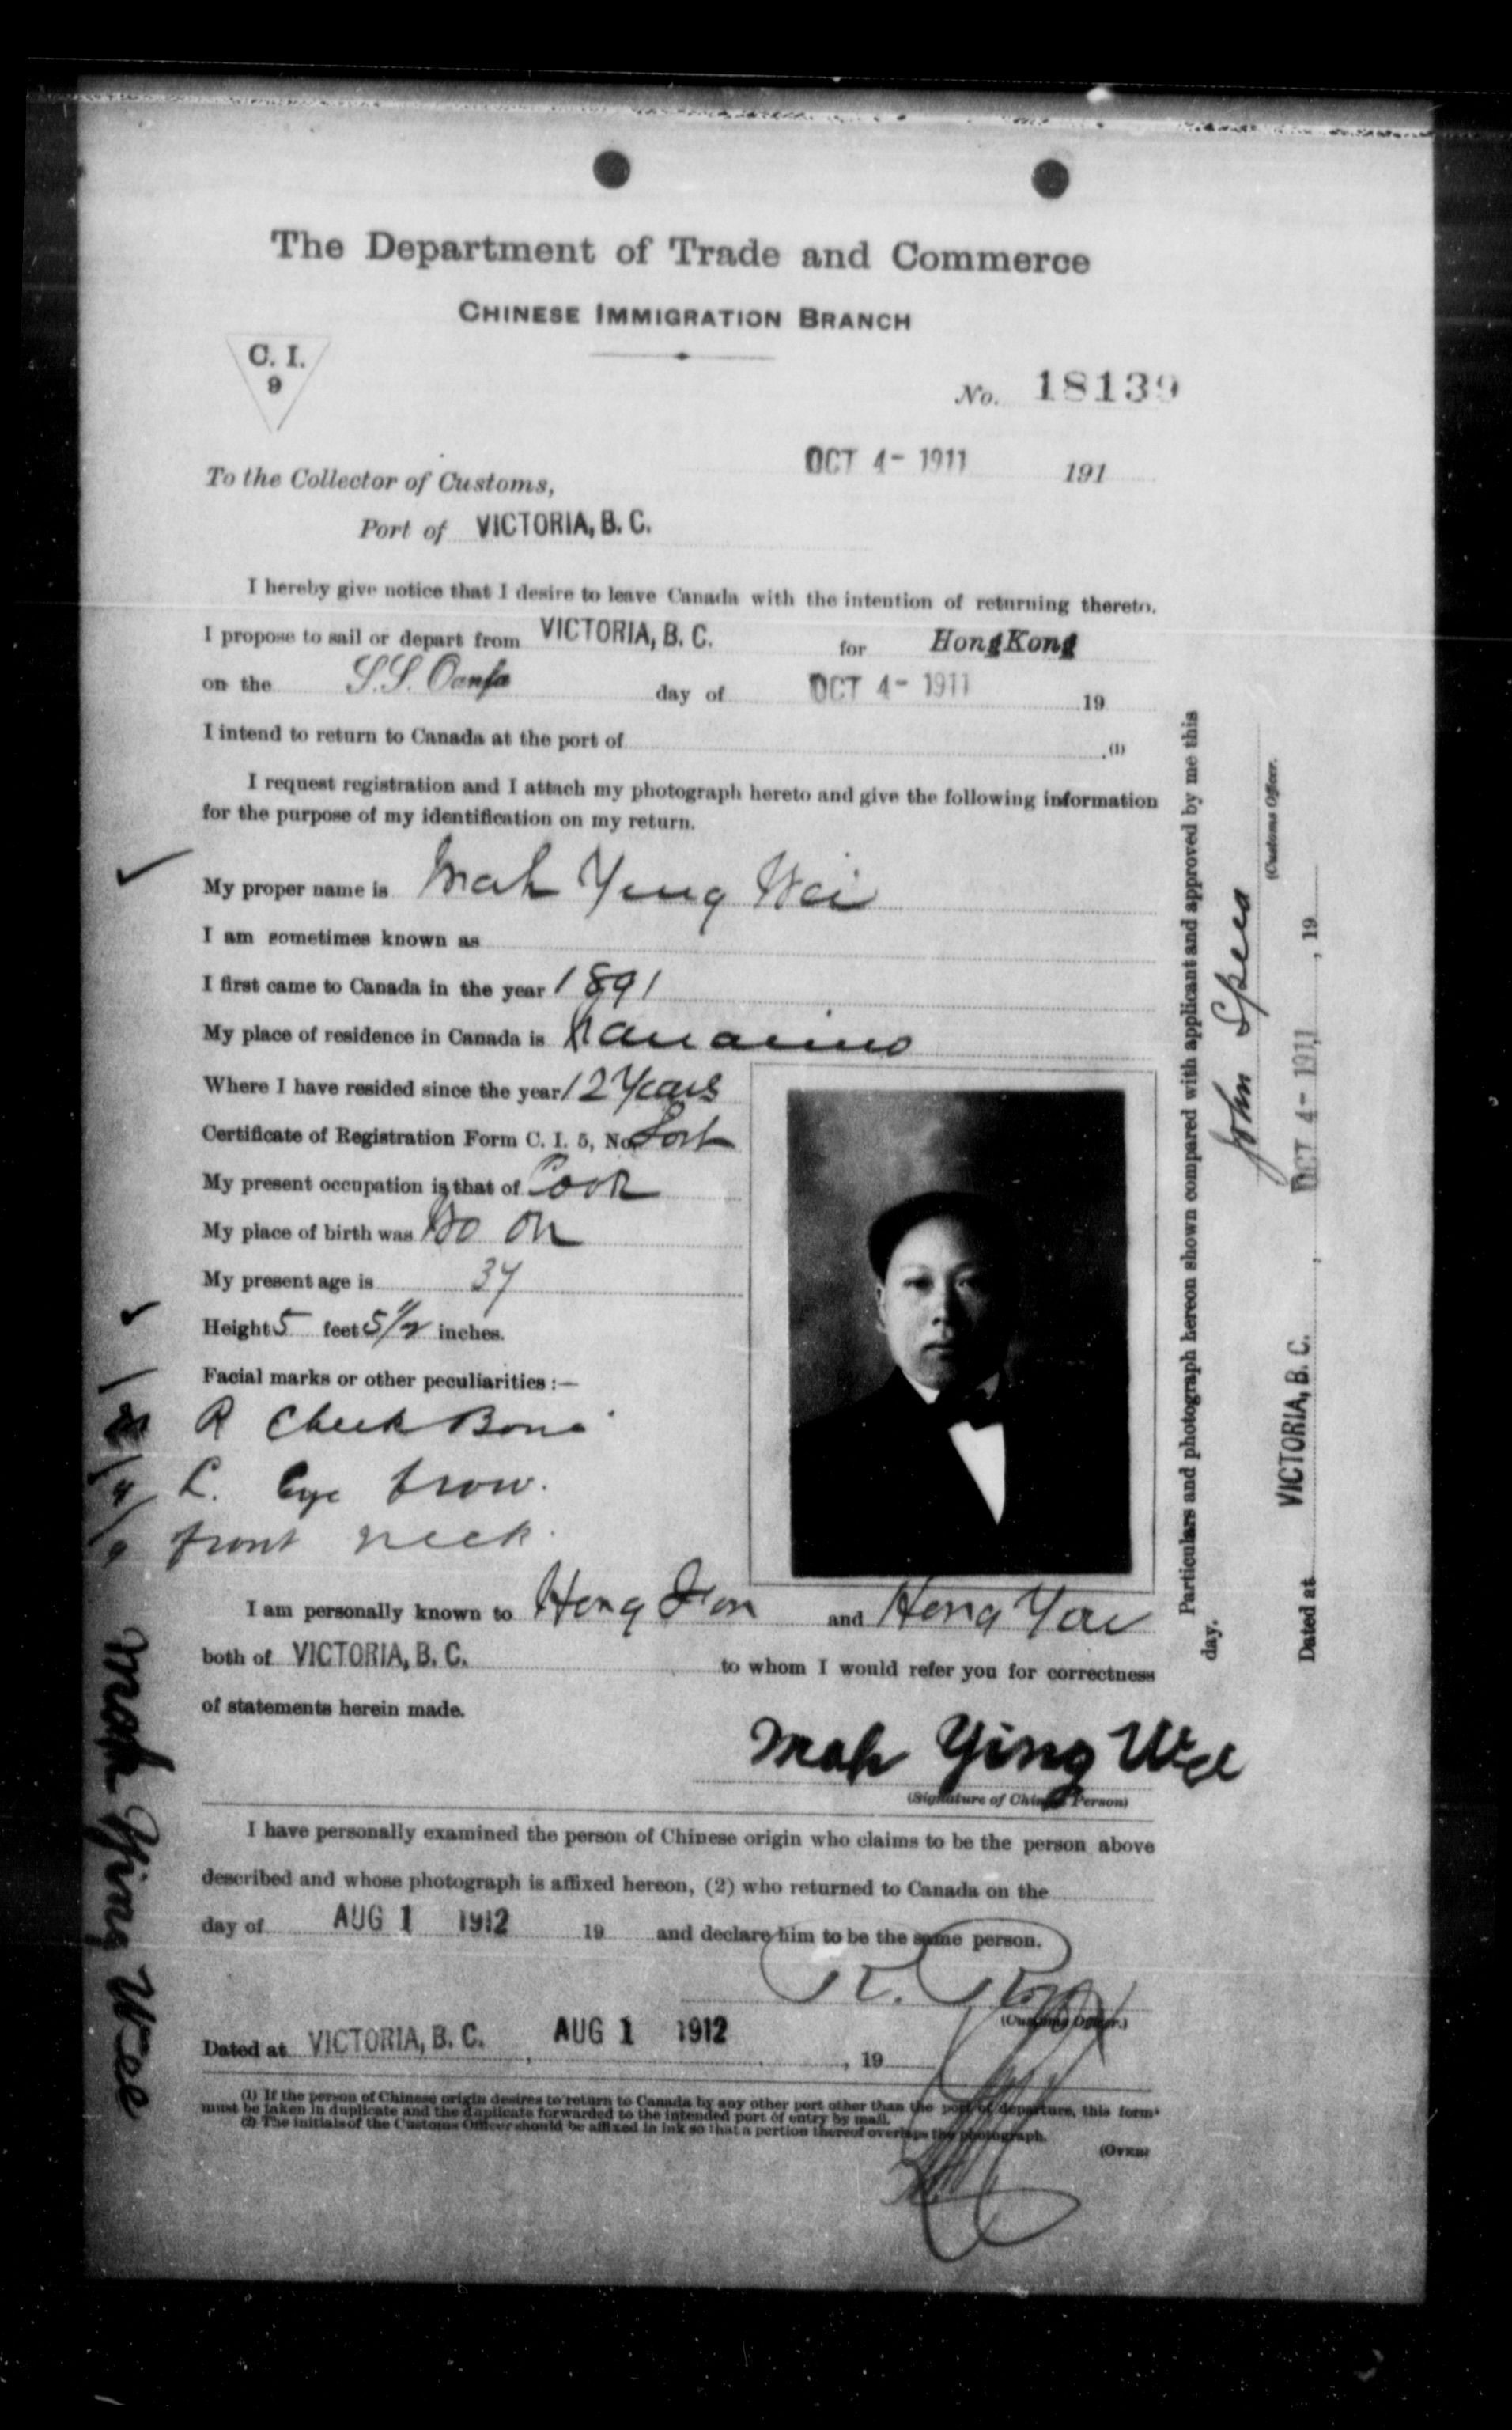 The Department of Trade and Commerce
CHINESE IMMIGRATION BRANCH
C. I.
9
No. 18139
OCT 4- 1911 191
To the Collector of Customs,
Port of VICTORIA, B. C.
I hereby give notice that I desire to leave Canada with the intention of returning thereto.
I propose to sail or depart from VICTORIA, B. C. for HongKong
on the S.S. Oanfa day of OCT 4- 1911 19
I intend to return to Canada at the port of (1)
I request registration and I attach my photograph hereto and give the following information
for the purpose of my identification on my return.
My proper name is Mah Ying Wei
I am sometimes known as
I first came to Canada in the year 1891
My place of residence in Canada is Nanaimo
Where I have resided since the year 12 Years
Certificate of Registration Form C. I. 5, No. Lost
My present occupation is that of Cook
My place of birth was Ho On
My present age is 37
Height 5 feet 5 1/2 inches.
Facial marks or other peculiarities :—
R Cheek Bone
L. Eye brow.
front neck.
I am personally known to Hong and Hong You
both of VICTORIA, B. C. to whom I would refer you for correctness
of statements herein made.
Mah Ying Wee
(Signature of Chinese Person)
I have personally examined the person of Chinese origin who claims to be the person above
described and whose photograph is affixed hereon, (2) who returned to Canada on the
day of AUG 1 1912 19 and declare him to be the same person.
(Customs Officer.)
Dated at VICTORIA, B. C. , AUG 1 1912 , 19
(1) If the person of Chinese origin desires to return to Canada by any other port other than the port of departure, this form
must be taken in duplicate and the duplicate forwarded to the intended port of entry by mail.
(2) The initials of the Customs Officer should be affixed in ink so that a portion thereof overlaps the photograph.
(OVER)
Particulars and photograph hereon shown compared with applicant and approved by me this
day.
John
(Customs Officer.
Dated at VICTORIA, B. C. , OCT 4- 1911 , 19
Mah Ying Wee